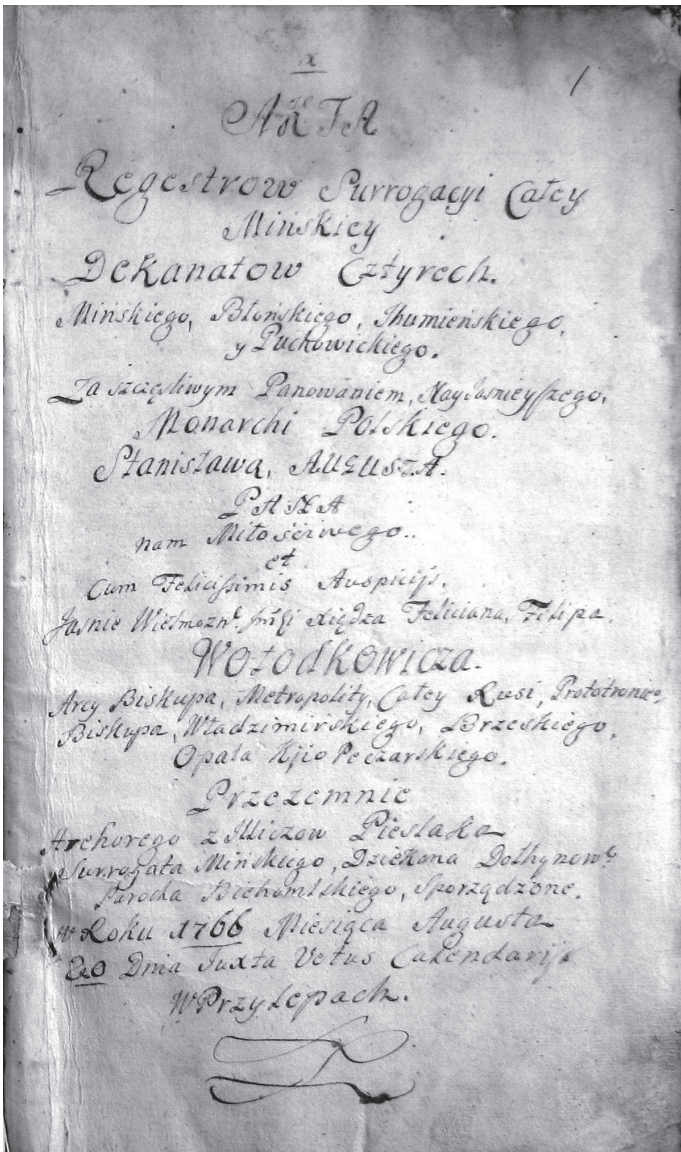 x
1
AKTA
Regestrow Surrogacyi Całey
Mińskiey
Dekanatow Cztyrech.
Mińskiego, Błońskiego, Jhumieńskiego,
y Puchowickiego.
Za szczęsliwym Panowaniem, Nayjasnieyszego,
Monarchi Polskiego.
Stanisława, AUGUSTA.
PANA
nam Miłościwego..
et
Cum Felicissimis Auspicijs.
Jasnie Wielmozn° Xiędza Feliciana, Filipa,
Wołodkowicza.
Arcy Biskupa, Metropolity, Całey Rusi, Prototronieo
Biskupa, Władzimirskiego, Brzeskiego,
Opata Kjio Peczarskiego.
Przezemnie
z Pieslaka
Surrogata Mińskiego, Dziekana Dołhynow°
Parocha Biehomlskiego, Sporządzone.
w Roku 1766 Miesiąca Augusta
20 Dnia Juxta Vetus Calendarij
W Przylepach.